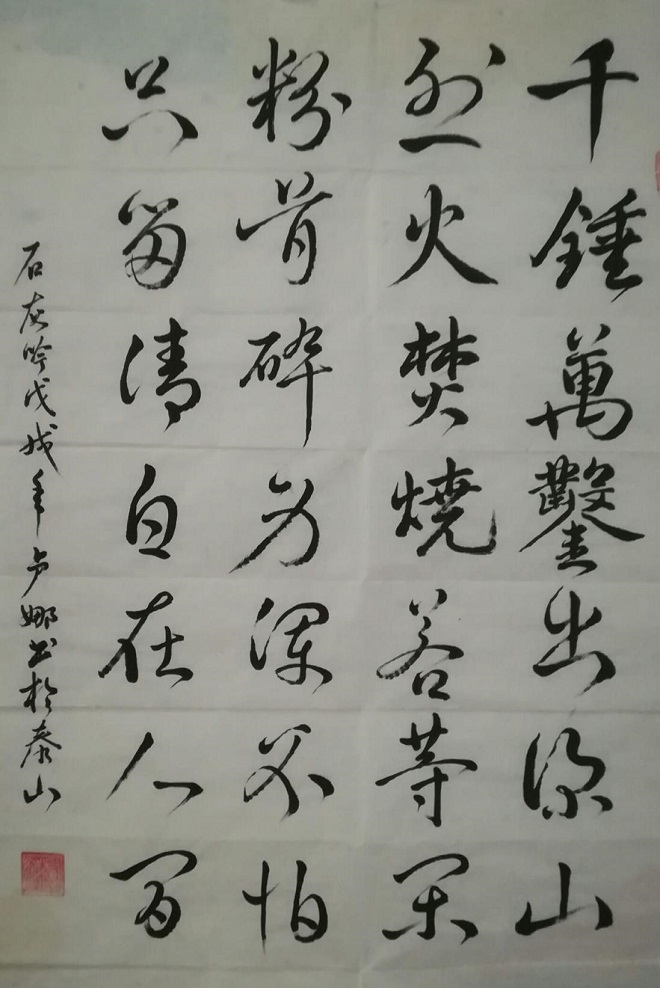 千錘萬鑿出深山
烈火焚燒若等閑
粉骨碎身渾不怕
只留清白在人間
石灰吟戊戌年卢娜书於泰山